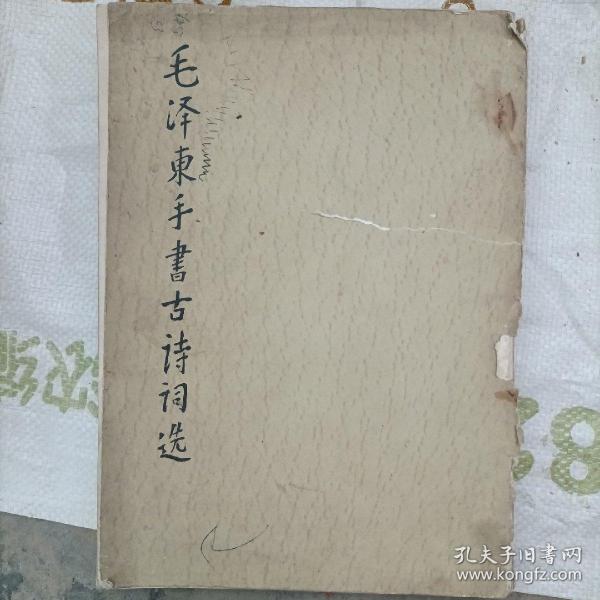 毛泽東手書古诗词选
孔夫子旧書网
www.kongfz.com